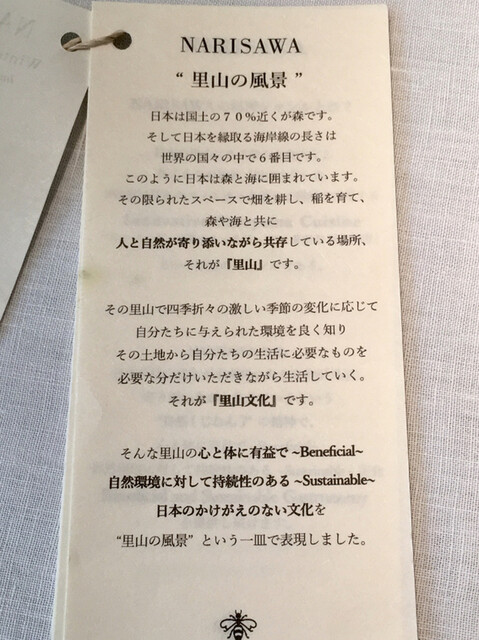 NARISAWA
“ 里山の風景 ”
日本は国土の７０％近くが森です。
そして日本を縁取る海岸線の長さは
世界の国々の中で６番目です。
このように日本は森と海に囲まれています。
その限られたスペースで畑を耕し、稲を育て、
森や海と共に
人と自然が寄り添いながら共存している場所、
それが『里山』です。
その里山で四季折々の激しい季節の変化に応じて
自分たちに与えられた環境を良く知り
その土地から自分たちの生活に必要なものを
必要な分だけいただきながら生活していく。
それが『里山文化』です。
そんな里山の心と体に有益で ~Beneficial~
自然環境に対して持続性のある ~Sustainable~
日本のかけがえのない文化を
“里山の風景” という一皿で表現しました。